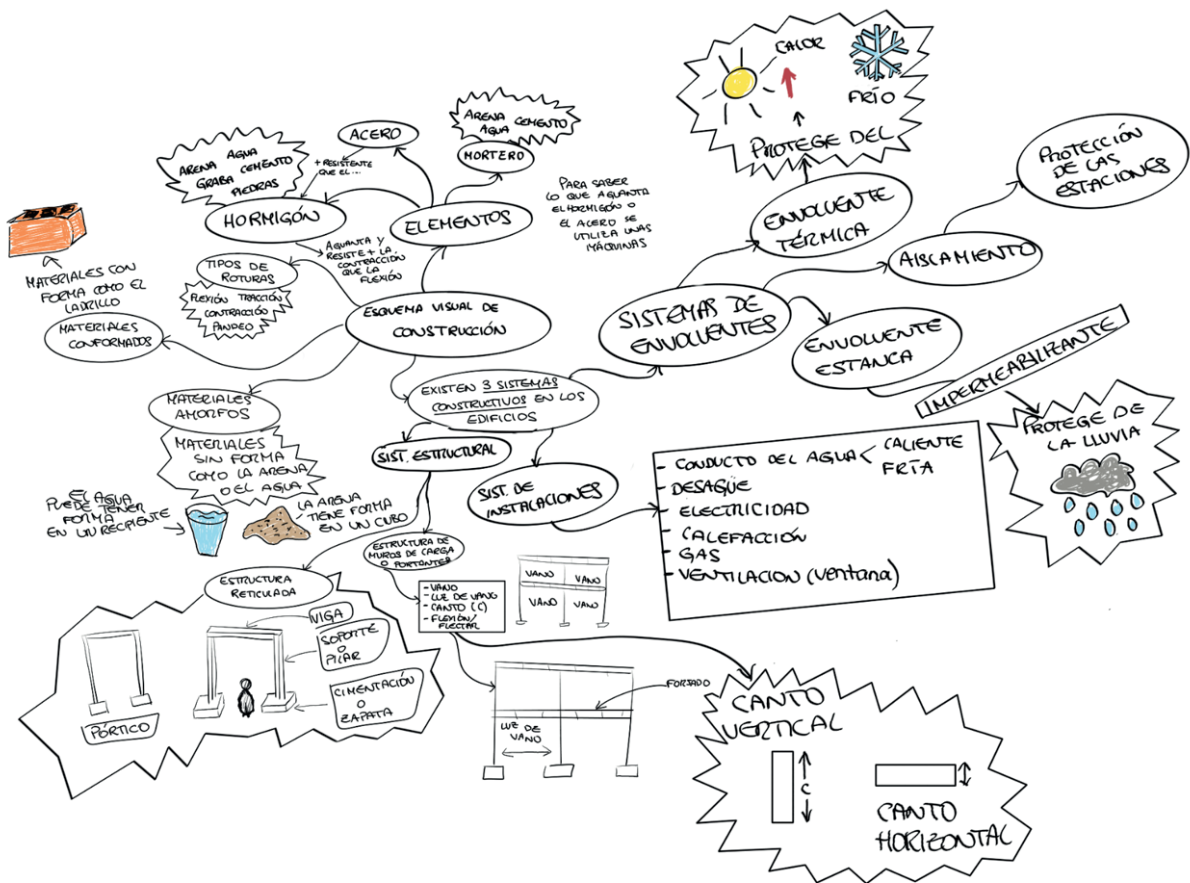 CALOR
FRÍO
PROTEGE DEL
ENVOLVENTE
TÉRMICA
PROTECCIÓN
DE LAS
ESTACIONES
AISLAMIENTO
SISTEMAS DE
ENVOLVENTES
ENVOLVENTE
ESTANCA
IMPERMEABILIZANTE
PROTEGE DE
LA LLUVIA
ARENA CEMENTO
AGUA
MORTERO
ACERO
+ RESISTENTE
QUE EL...
ARENA AGUA
GRABA CEMENTO
PIEDRAS
HORMIGÓN
ELEMENTOS
PARA SABER
LO QUE AGUANTA
EL HORMIGÓN O
EL ACERO SE
UTILIZA UNAS
MÁQUINAS
AGUANTA Y
RESISTE + LA
CONTRACCIÓN
QUE LA
FLEXIÓN
TIPOS DE
ROTURAS
FLEXIÓN TRACCIÓN
CONTRACCIÓN
PANDEO
MATERIALES CON
FORMA COMO EL
LADRILLO
MATERIALES
CONFORMADOS
ESQUEMA VISUAL DE
CONSTRUCCIÓN
EXISTEN 3 SISTEMAS
CONSTRUCTIVOS EN LOS
EDIFICIOS
MATERIALES
AMORFOS
MATERIALES
SIN FORMA
COMO LA ARENA
O EL AGUA
EL AGUA
PUEDE TENER
FORMA
EN UN RECIPIENTE
LA ARENA
TIENE FORMA
EN UN CUBO
SIST. ESTRUCTURAL
SIST. DE
INSTALACIONES
- CONDUCTO DEL AGUA < CALIENTE
FRÍA
- DESAGÜE
- ELECTRICIDAD
- CALEFACCIÓN
- GAS
- VENTILACION (ventana)
ESTRUCTURA DE
MUROS DE CARGA
O PORTANTES
- VANO
- LUZ DE VANO
- CANTO (C)
- FLEXIÓN/
FLECTAR
VANO VANO
VANO VANO
ESTRUCTURA
RETICULADA
VIGA
SOPORTE
O
PILAR
CIMENTACIÓN
O
ZAPATA
PÓRTICO
FORJADO
LUZ DE
VANO
CANTO
VERTICAL
C
CANTO
HORIZONTAL